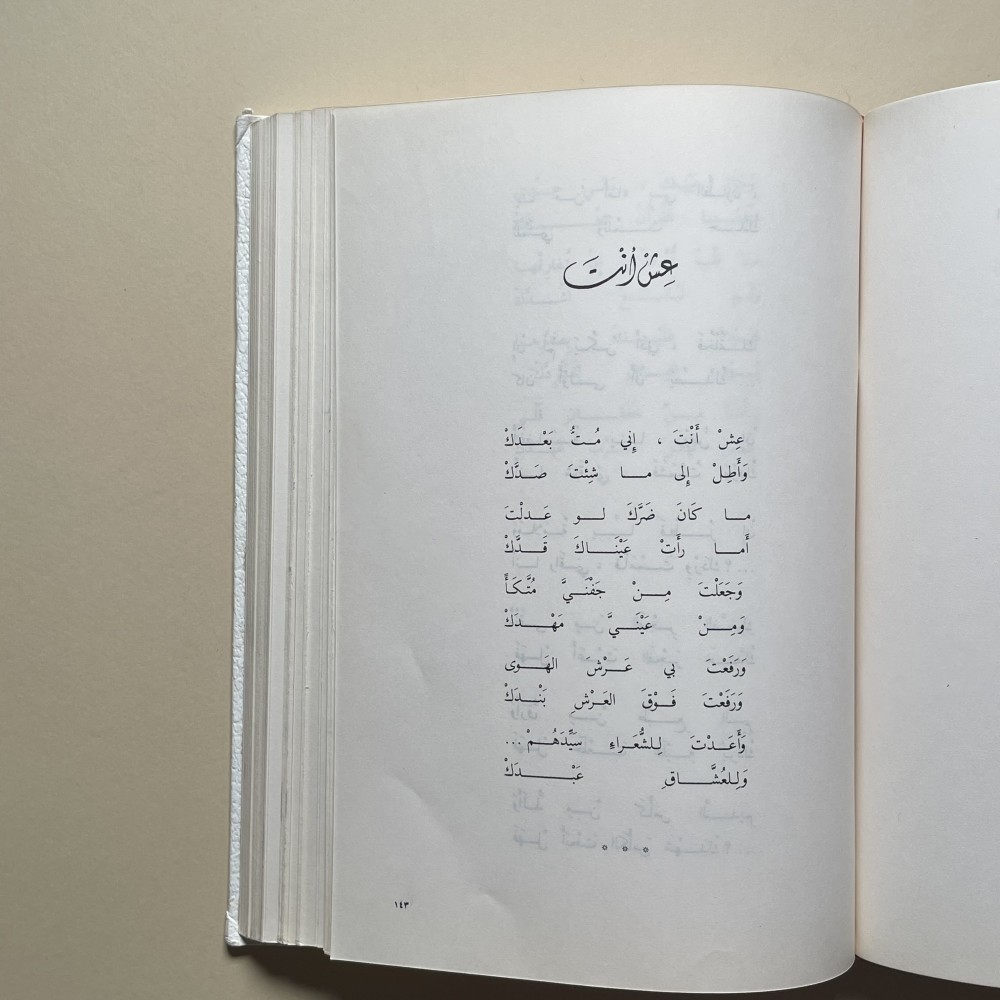 عِشْ أَنْتَ
عِشْ أَنْتَ ، إِني مُتُّ بَعْدَكْ
وَأَطِلْ إِلى ما شِئْتَ صَدَّكْ
ما كَانَ ضَرَّكَ لو عَدلْتَ
أَما رأَتْ عَيْنَاكَ قَدَّكْ
وَجَعَلْتَ مِنْ جَفْنَيَّ مُتَّكَأً
وَمِنْ عَيْنَيَّ مَهْدَكْ
وَرَفَعْتَ بي عَرْشَ الهَوى
وَرَفَعْتَ فَوْقَ العَرْشِ بَنْدَكْ
وَأَعَدْتَ لِلشُّعَراءِ سَيِّدَهُمْ ...
وَلِلعُشَّاقِ عَبْدَكْ
١٤٣